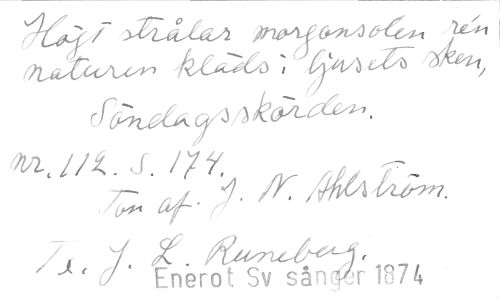 Högt strålar morgonsolen ren
naturen kläds i ljusets sken,
Söndagsskörden.
nr. 112. S. 174.
Ton af J. N. Ahlström.
Tx. J. L. Runeberg.
Enerot Sv sånger 1874